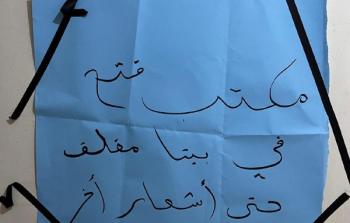 مكتب فتح
في بيتا مغلق
حتى إشعار آخر